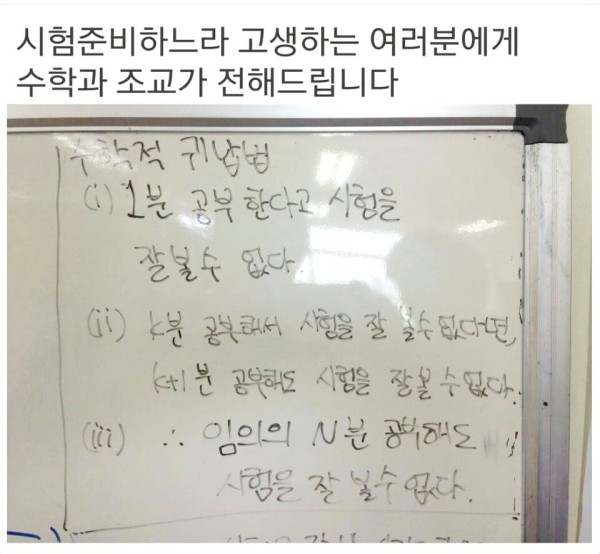 시험준비하느라 고생하는 여러분에게
수학과 조교가 전해드립니다
수학적 귀납법
(i) 1분 공부한다고 시험을
잘볼수 없다.
(ii) k분 공부해서 시험을 잘 볼수없다면,
k+1분 공부해도 시험을 잘볼수없다.
(iii) ∴ 임의의 N분 공부해도
시험을 잘 볼수없다.